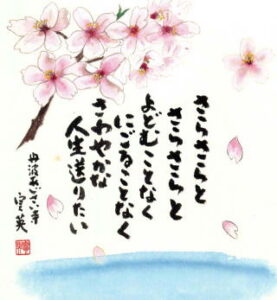 さらさらと
さらさらと
よどむことなく
にごることなく
さわやかな
人生送りたい
丹波あじさい寺
実英